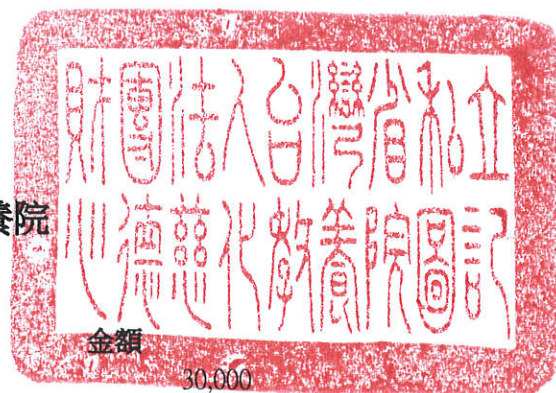 財團法人台灣省私立
心德慈化教養院圖記
養院
金額
30,000